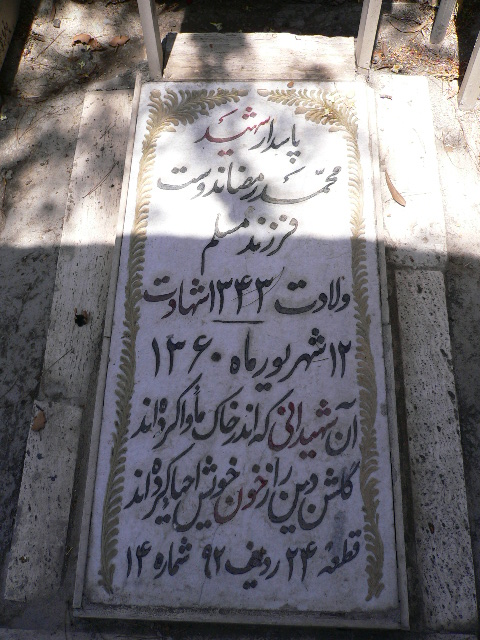 پاسدار شهید
محمّد رمضاندوست
فرزند مسلم
ولادت ۱۳۴۳ شهادت
۱۲ شهریور ماه ۱۳۶۰
آن شهیدانی که اندر خاک مأوا کرده‌اند
گلشن دین را ز خون خویش احیا کرده‌اند
قطعه ۲۴ ردیف ۹۲ شماره ۱۴